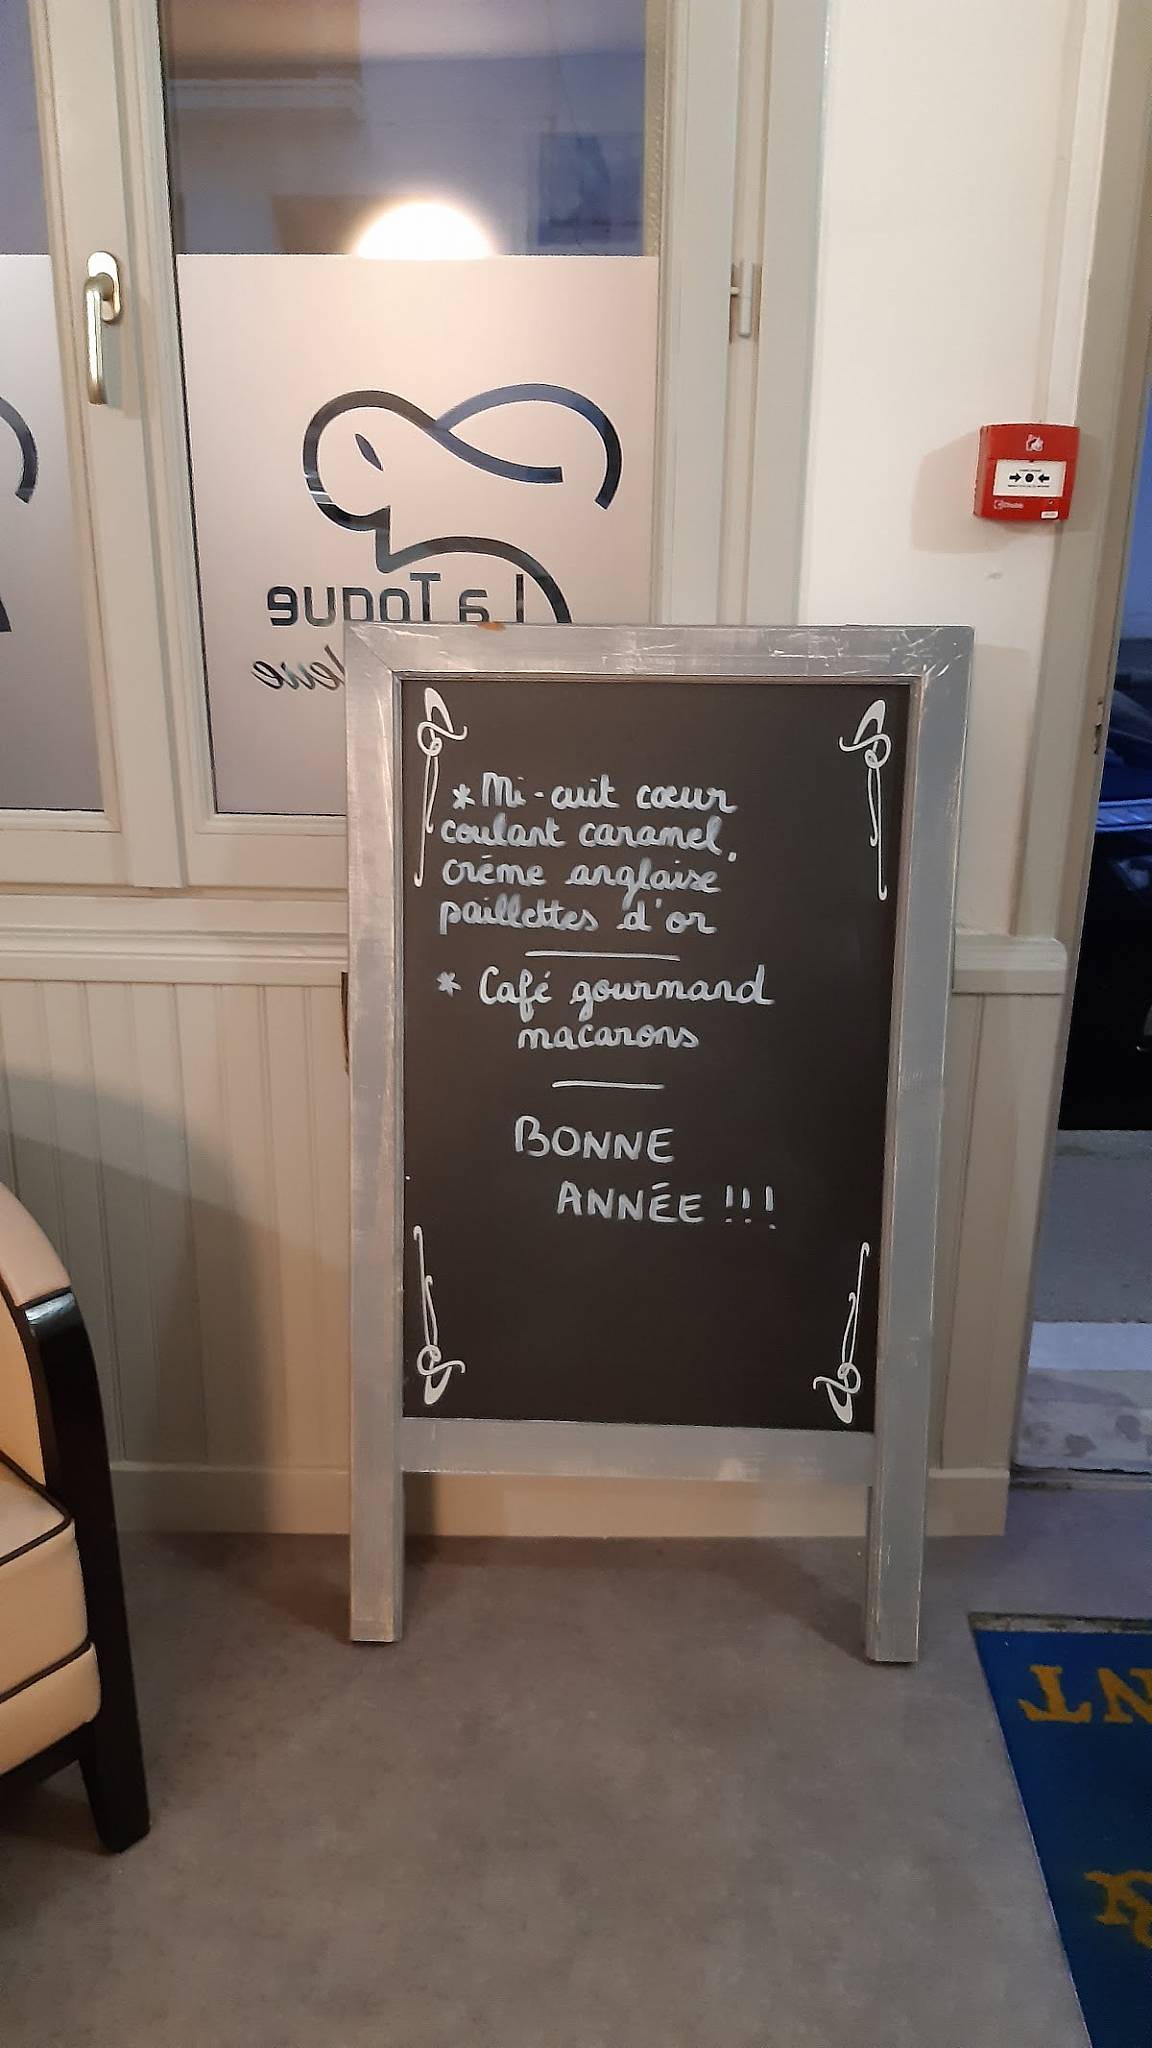 La Toque
*Mi-cuit cœur
coulant caramel,
crème anglaise
paillettes d'or
* Café gourmand
macarons
BONNE
ANNÉE !!!